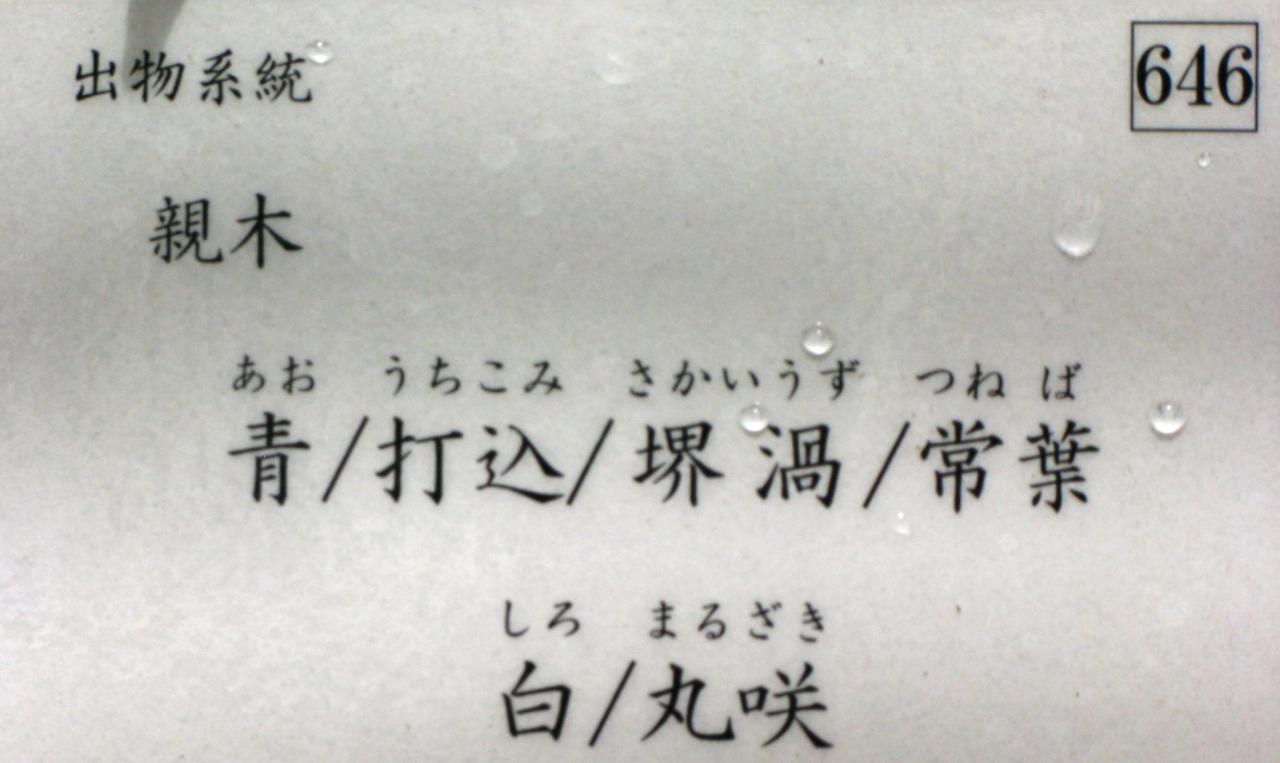 出物系統 646
親木
あお うちこみ さかいうず つねば
青/打込/堺渦/常葉
しろ まるざき
白/丸咲